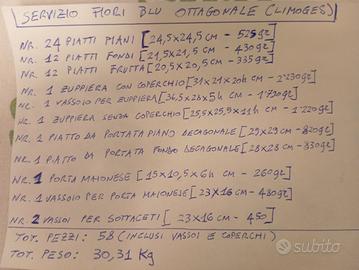 SERVIZIO FIORI BLU OTTAGONALE (LIMOGES)
NR. 24 PIATTI PIANI [24,5x24,5 cm - 525 gr]
NR. 12 PIATTI FONDI [21,5x21,5 cm - 430 gr]
NR. 12 PIATTI FRUTTA [20,5x20,5 cm - 335 gr]
NR. 1 ZUPPIERA CON COPERCHIO [31x21x20h cm - 2.230 gr]
NR. 1 VASSOIO PER ZUPPIERA [36,5x28x5h cm - 1.720 gr]
NR. 1 ZUPPIERA SENZA COPERCHIO [25,5x25,5x11h cm - 1.220 gr]
NR. 1 PIATTO DA PORTATA PIANO DECAGONALE [29x29 cm - 820 gr]
NR. 1 PIATTO DA PORTATA FONDO DECAGONALE [28x28 cm - 830 gr]
NR. 1 PORTA MAIONESE [15x10,5x6h cm - 260 gr]
NR. 1 VASSOIO PER PORTA MAIONESE [23x16 cm - 480 gr]
NR. 2 VASSOI PER SOTTACETI [23x16 cm - 480]
TOT. PEZZI: 58 (INCLUSI VASSOI E COPERCHI)
TOT. PESO: 30,31 Kg
subito